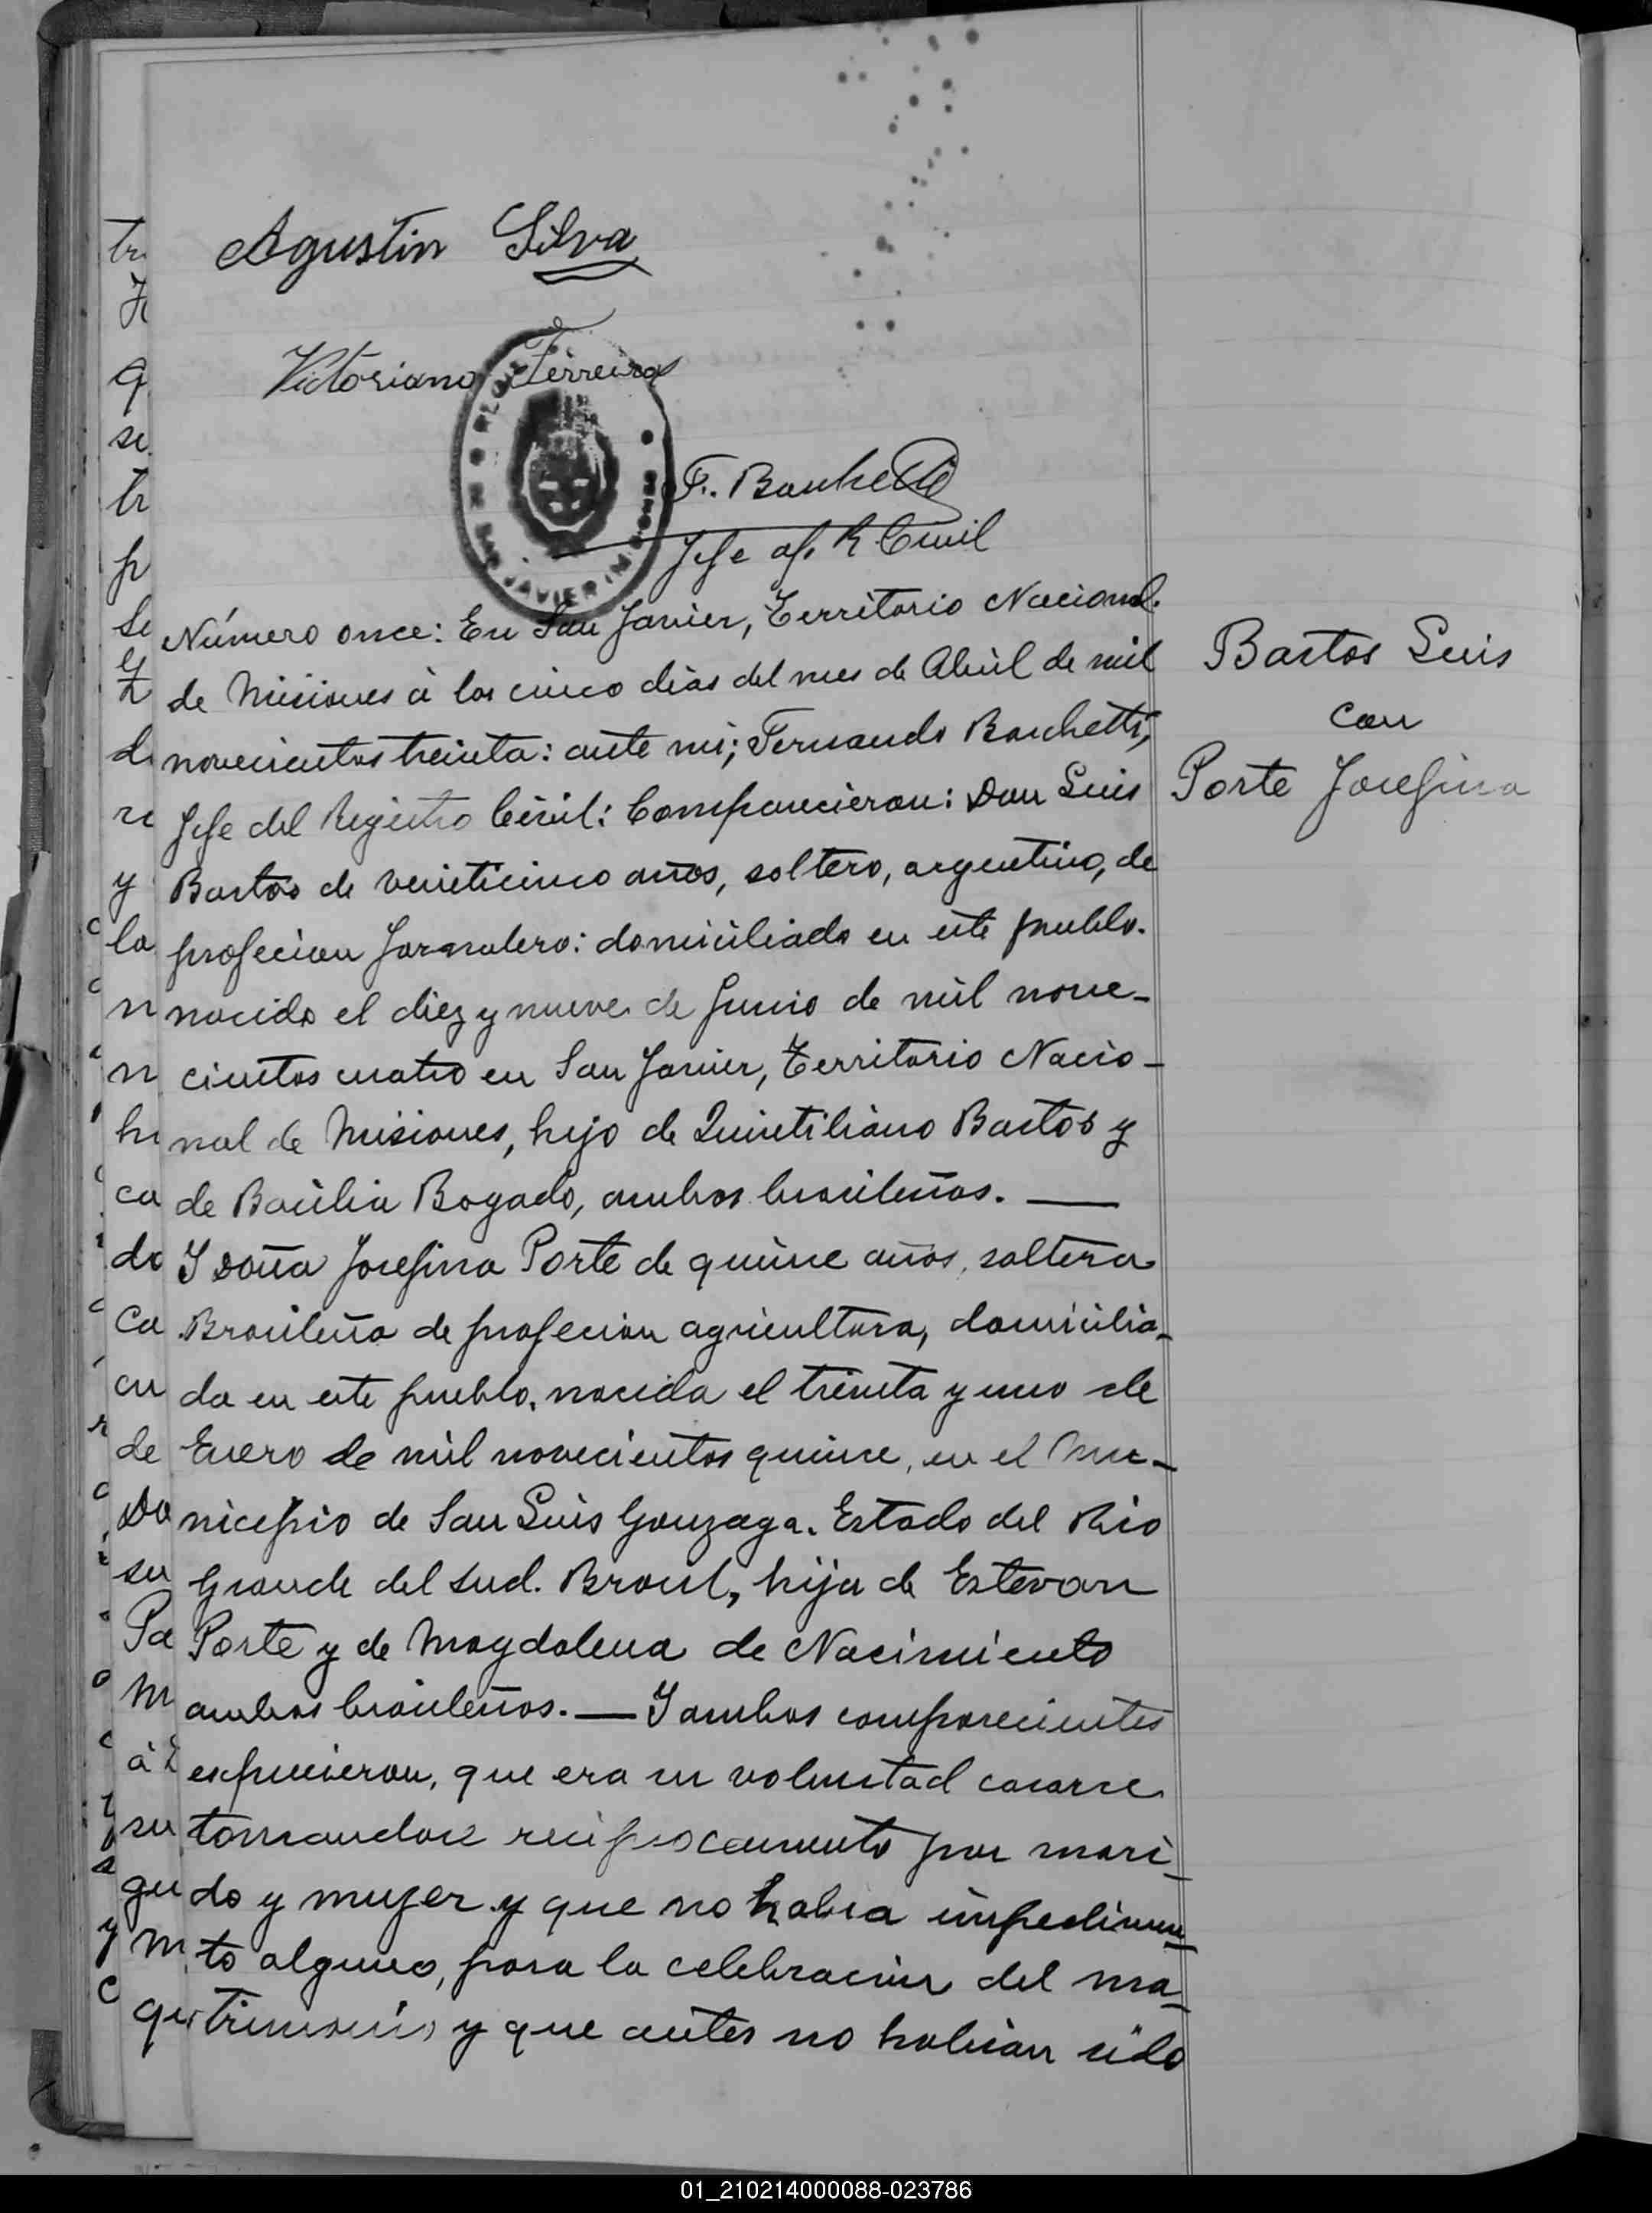 Agustin Silva
Victoriano Ferreira
F. Barchetti
Jefe of. R Civil
SAN JAVIER (MISIONES)
Número once: En San Javier, Territorio Nacional
de Misiones à los cinco dias del mes de Abril de mil
novecientos treinta: ante mi; Fernando Barchetti,
Jefe del Registro Civil: Comparecieron: Don Luis
Bastos de veinticinco años, soltero, argentino, de
profecion Jornalero: domiciliado en este pueblo.
nacido el diez y nueve de Junio de mil nove-
cientos cuatro en San Javier, Territorio Nacio-
nal de Misiones, hijo de Quintiliano Bastos y
de Basilia Bogado, ambos brasileños. —
Y Doña Josefina Porte de quince años, soltera
Brasileña de profecion agricultora, domicilia-
da en este pueblo, nacida el treinta y uno de
Enero de mil novecientos quince, en el Mu-
nicipio de San Luis Gonzaga. Estado del Rio
Grande del Sud. Brasil, hija de Estevan
Porte y de Magdalena de Nacimiento
ambos brasileños. — Y ambos comparecientes
espucieron, que era su voluntad casarse
tomandose reciprocamente por mari-
do y mujer y que no habia impedimen-
to alguno, para la celebracion del ma-
trimonio y que antes no habian sido
Bastos Luis
con
Porte Josefina
01_210214000088-023786